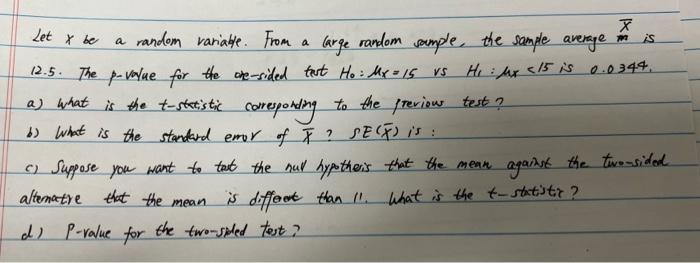 Let x be a random variable. From a large random sample, the sample average X̅ is
12.5. The p-value for the one-sided test H₀: Mx = 15 vs H₁: Mx < 15 is 0.0344.
a) What is the t-statistic corresponding to the previous test?
b) What is the standard error of X̅? SE(X̅) is:
c) Suppose you want to test the null hypothesis that the mean against the two-sided
alternative that the mean is different than 11. What is the t-statistic?
d) P-value for the two-sided test?